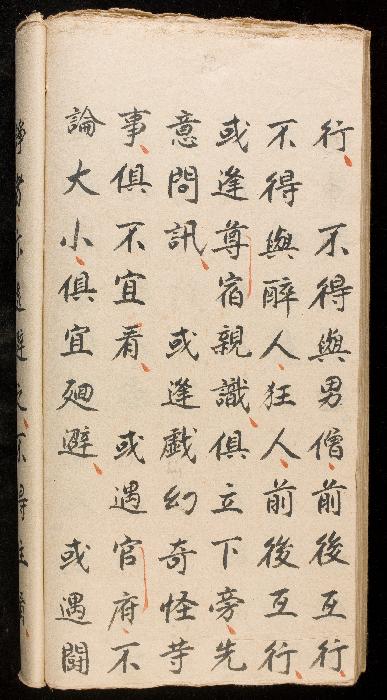 行 不得與男僧前後互行
不得與醉人狂人前後互行
或逢尊宿親識俱立下旁先
意問訊 或逢戲幻奇怪等
事俱不宜看 或遇官府不
論大小俱宜廻避 或遇鬪